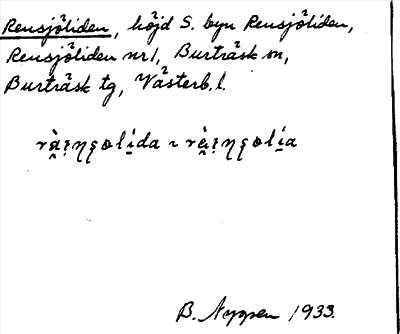 Rensjöliden, höjd S. byn Rensjöliden,
Rensjöliden nr 1, Burträsk sn,
Burträsk tg, Västerb. l.
B. Nyppen 1933.